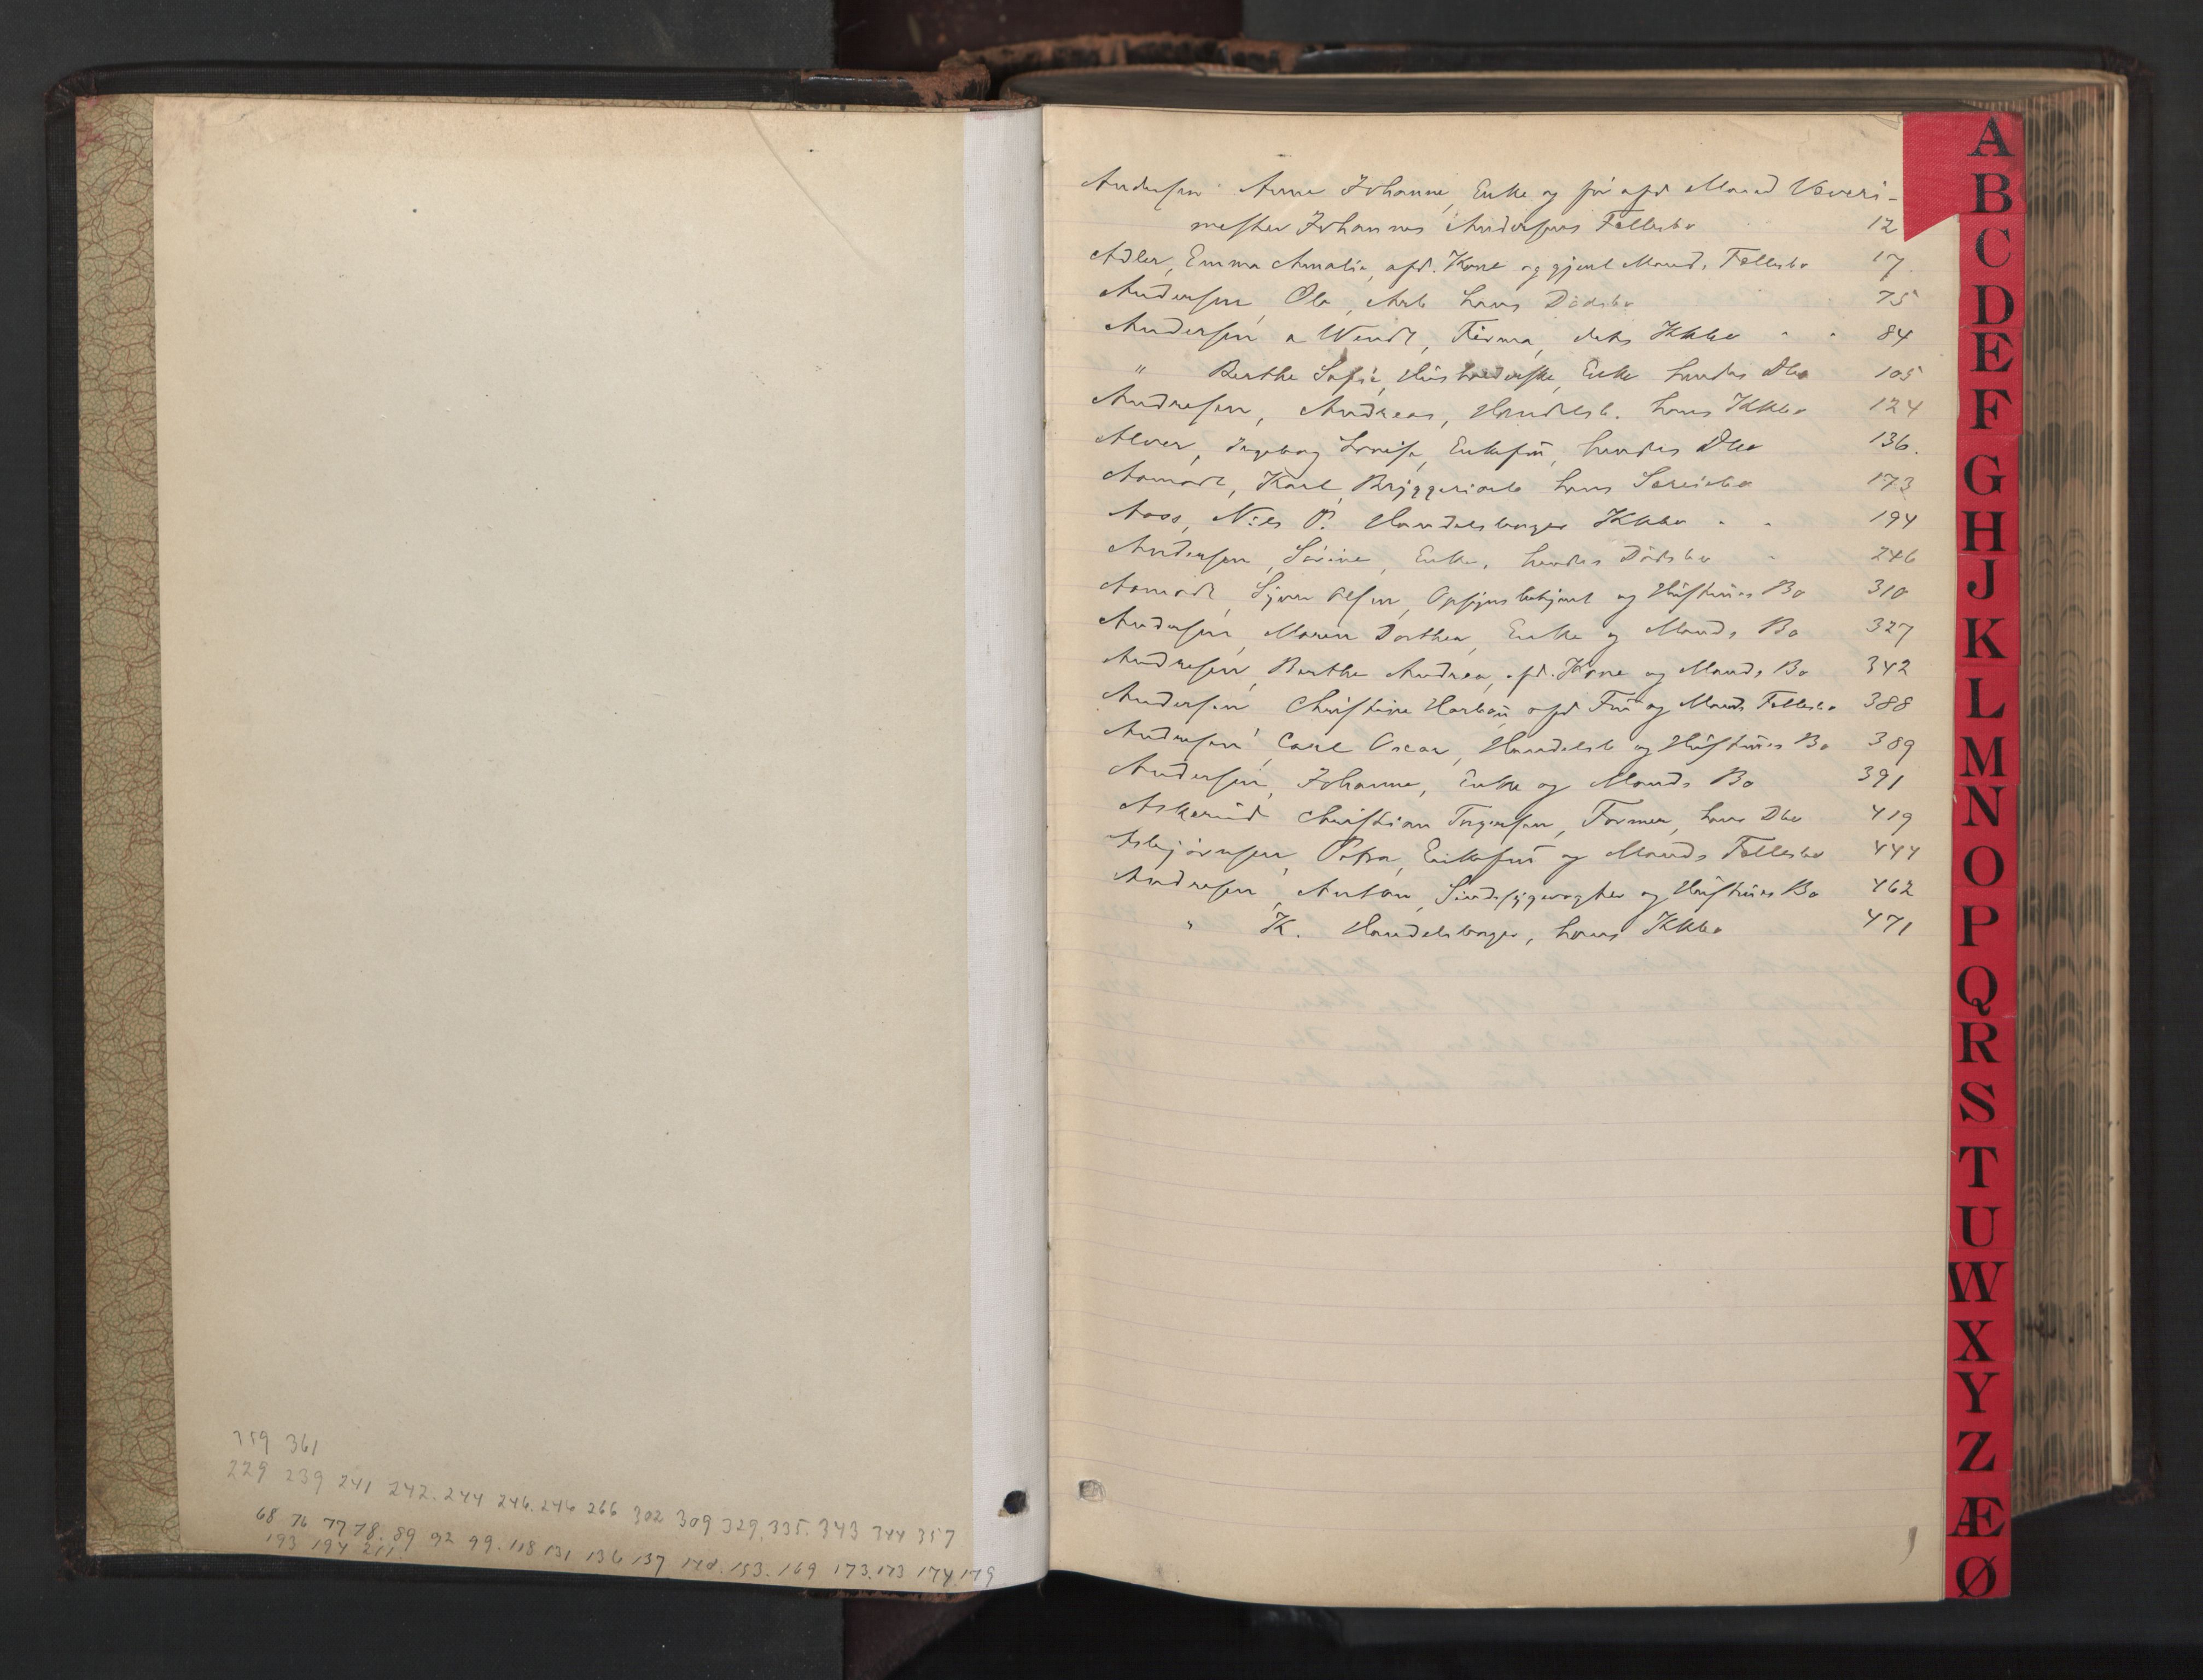 359 361
229 239 241 242. 244 246. 246 266 302 309 329. 335. 343 344 357
68 76 77 78. 89 92 99. 118 131 136 137 148. 153. 169 173. 173 174. 179
193 194 211.
Andersen Anne Johanne, Enke og før afd Mand Væveri-
mester Johannes Andersens Fællesbo 12
Adler, Emma Amalie, afd. Kone og gjenl Mands Fællesbo 17
Andersen, Ole, Arb hans Dödsbo 75
Andersen & Wendt, Firma, dets Kkbo " " 84
" Berthe Sofie, Hushoderske, Enke hendes Dbo 105
Andresen, Andreas, Handelsb. hans Kkbo 124
Alver, Ingeborg Lovise, Enkefru, hendes Dbo 136.
Aamodt, Karl, Bryggeriarb hans Særeiebo 173
Aass, Nils P. Handelsborger Kkbo " " 194
Andersen, Sörine, Enke, hendes Dödsbo " 246
Aamodt, Syver Olsen, Opsynsbetjent og Hustrues Bo 310
Andersen, Maren Dorthea, Enke og Mands Bo 327
Andresen, Berthe Andrea, afd. Kone og Mands Bo 342
Andersen Christine Harboe, afd Fru og Mands Fællesbo 388
Andresen, Carl Oscar, Handelsb og Hustrues Bo 389
Andersen, Johanne, Enke og Mands Bo 391
Askerud Christian Torgersen, Former, hans Dbo 419
Asbjörnsen, Petra, Enkefru og Mands Fællesbo 444
Andresen, Anton, Sindssygevogter og Hustrues Bo 462
" K. Handelsborger, hans Kkbo 471
A
B
C
D
E
F
G
H
J
K
L
M
N
O
P
Q
R
S
T
U
W
X
Y
Z
Æ
Ø